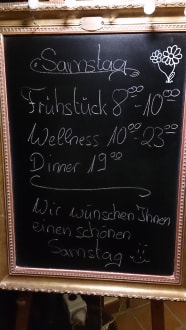 Samstag
Frühstück 8⁰⁰-10⁰⁰
Wellness 10⁰⁰-23⁰⁰
Dinner 19⁰⁰
Wir wünschen Ihnen
einen schönen
Samstag :-)